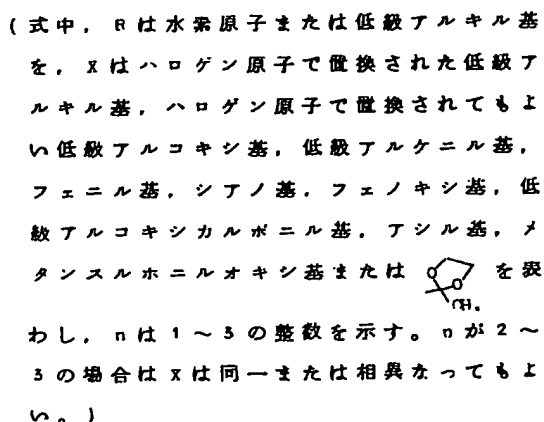 (式中，Rは水素原子または低級アルキル基
を，Xはハロゲン原子で置換された低級ア
ルキル基，ハロゲン原子で置換されてもよ
い低級アルコキシ基，低級アルケニル基，
フェニル基，シアノ基，フェノキシ基，低
級アルコキシカルボニル基，アシル基，メ
タンスルホニルオキシ基または O O CH₃ を表
わし，nは1～3の整数を示す。nが2～
3の場合はXは同一または相異なってもよ
い。)